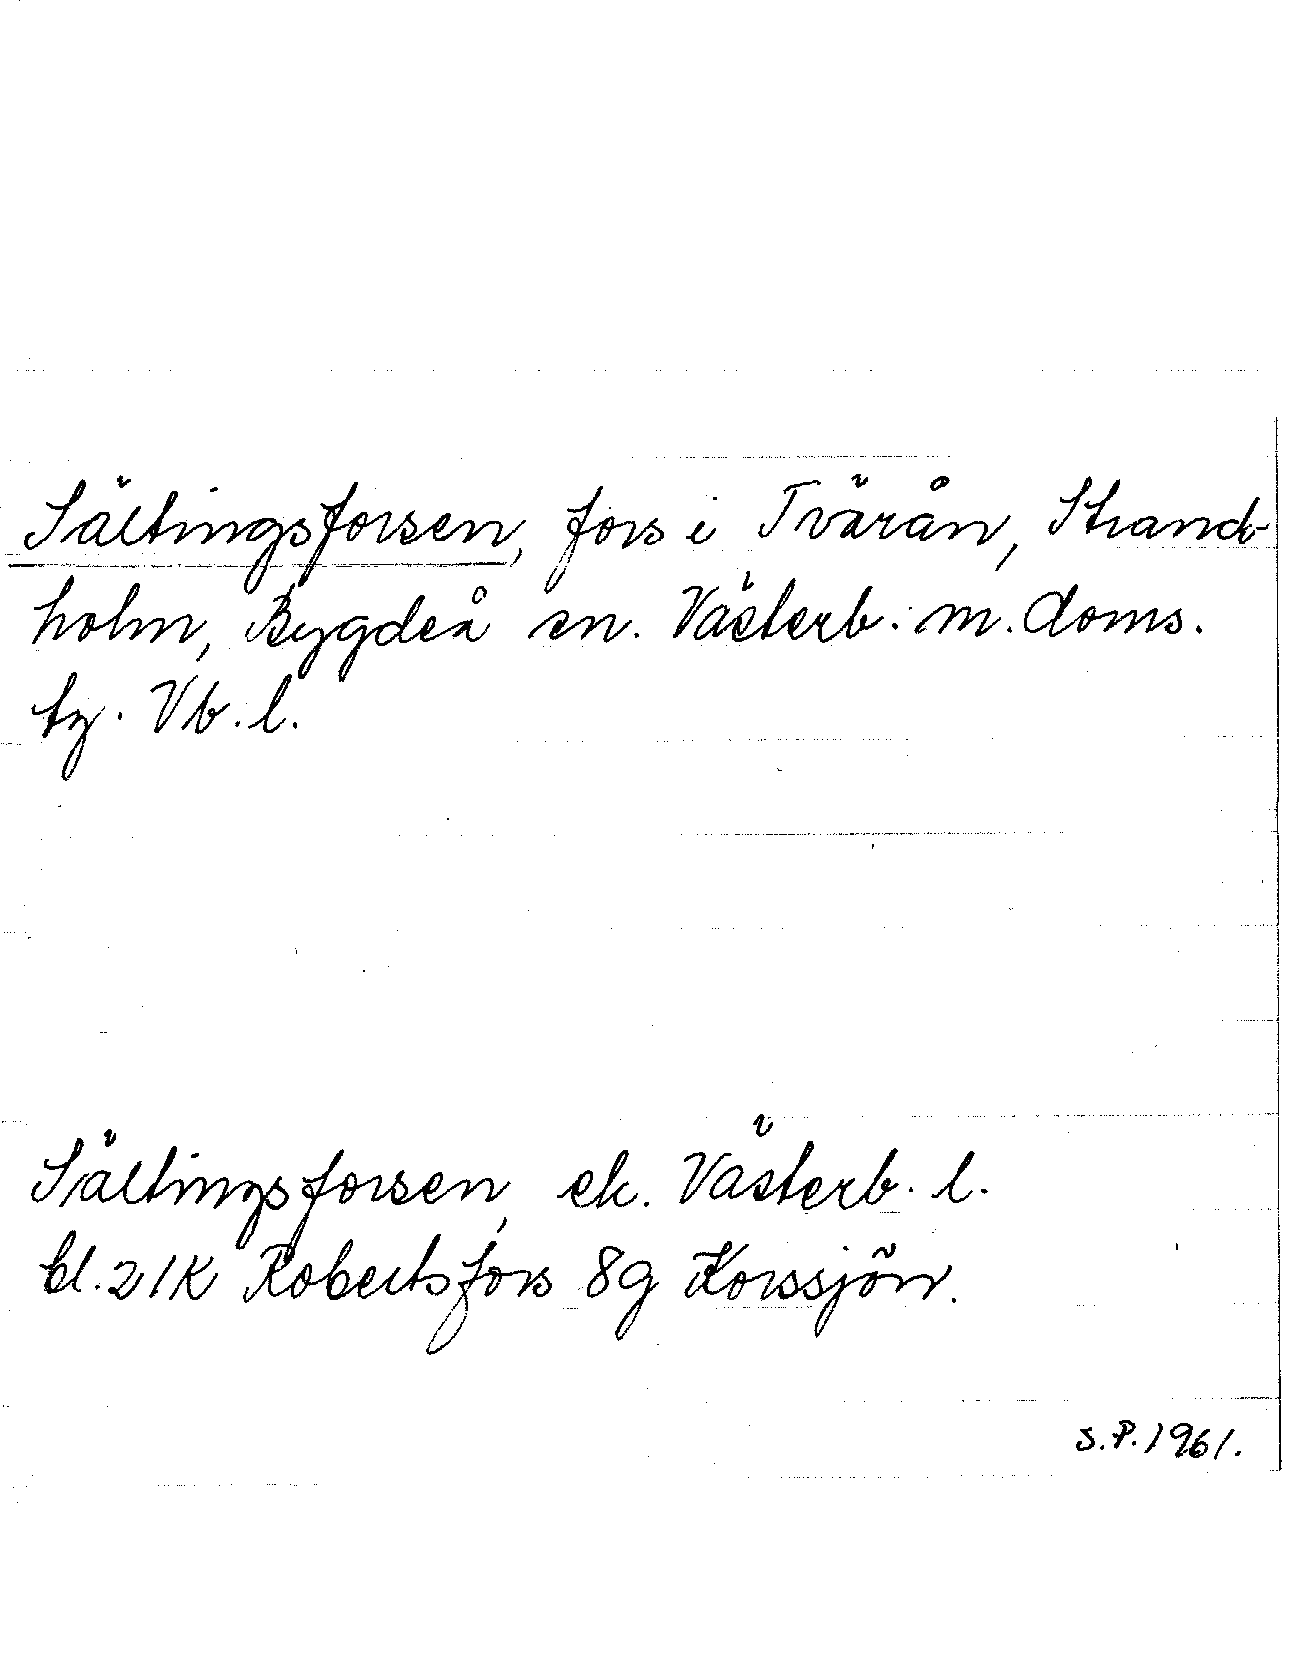 Sältingsforsen, fors i Tvärån, Strand-
holm, Bygdeå sn. Västerb. m. doms.
tg. Vb. l.
Sältingsforsen, ek. Västerb. l.
bl. 21K Robertsfors 8g Korssjön.
S.P. 1961.